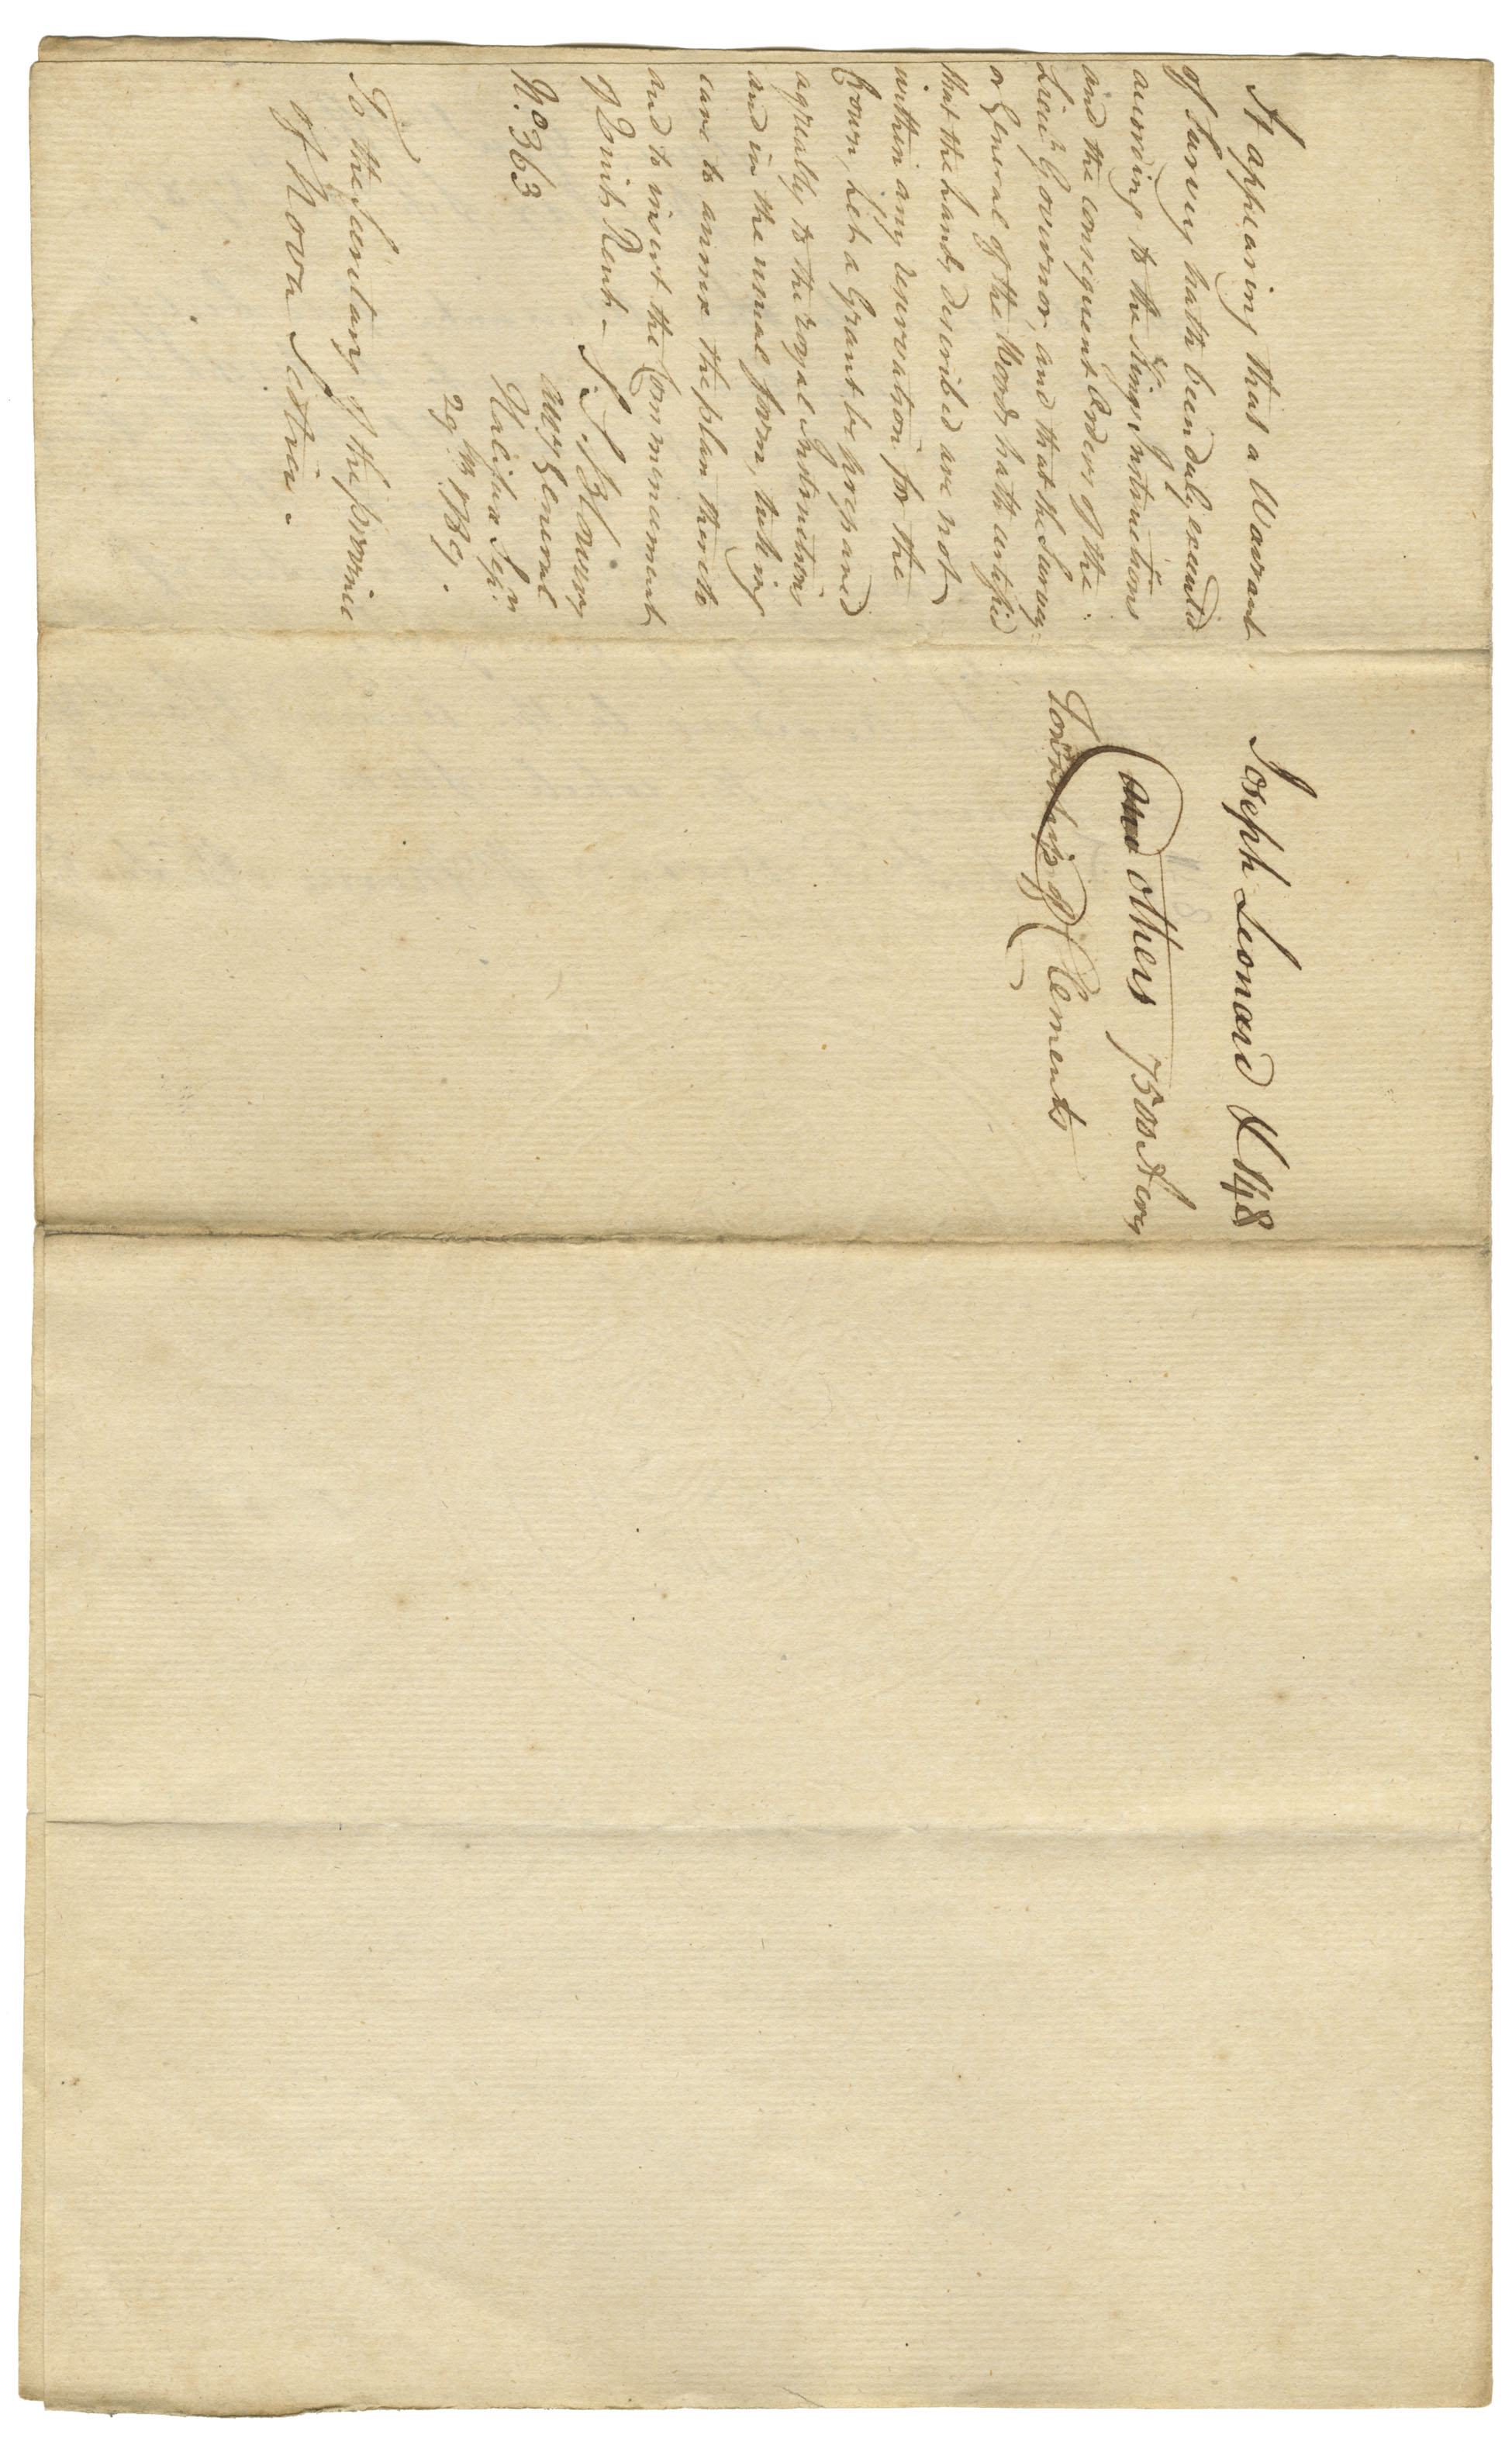 It appearing that a Warrant
of Survey hath been duly executed
according to the King's Instructions
and the consequent Orders of the
Lieut. Governor, and that the Survey-
or General of the Woods hath certified
that the Lands described are not
within any reservation for the
Crown, Let a Grant be prepared
agreeably to the royal Instructions
and in the usual form, taking
care to annex the plan thereto
and to insert the Commencement
of Quit Rent— S. S. Blowers
Atty General
No. 363 Halifax Sepr
29th 1789.
To the Secretary of the province
of Nova Scotia.
Joseph Leonard & 148
and others 7500 Acres
Township of Clements